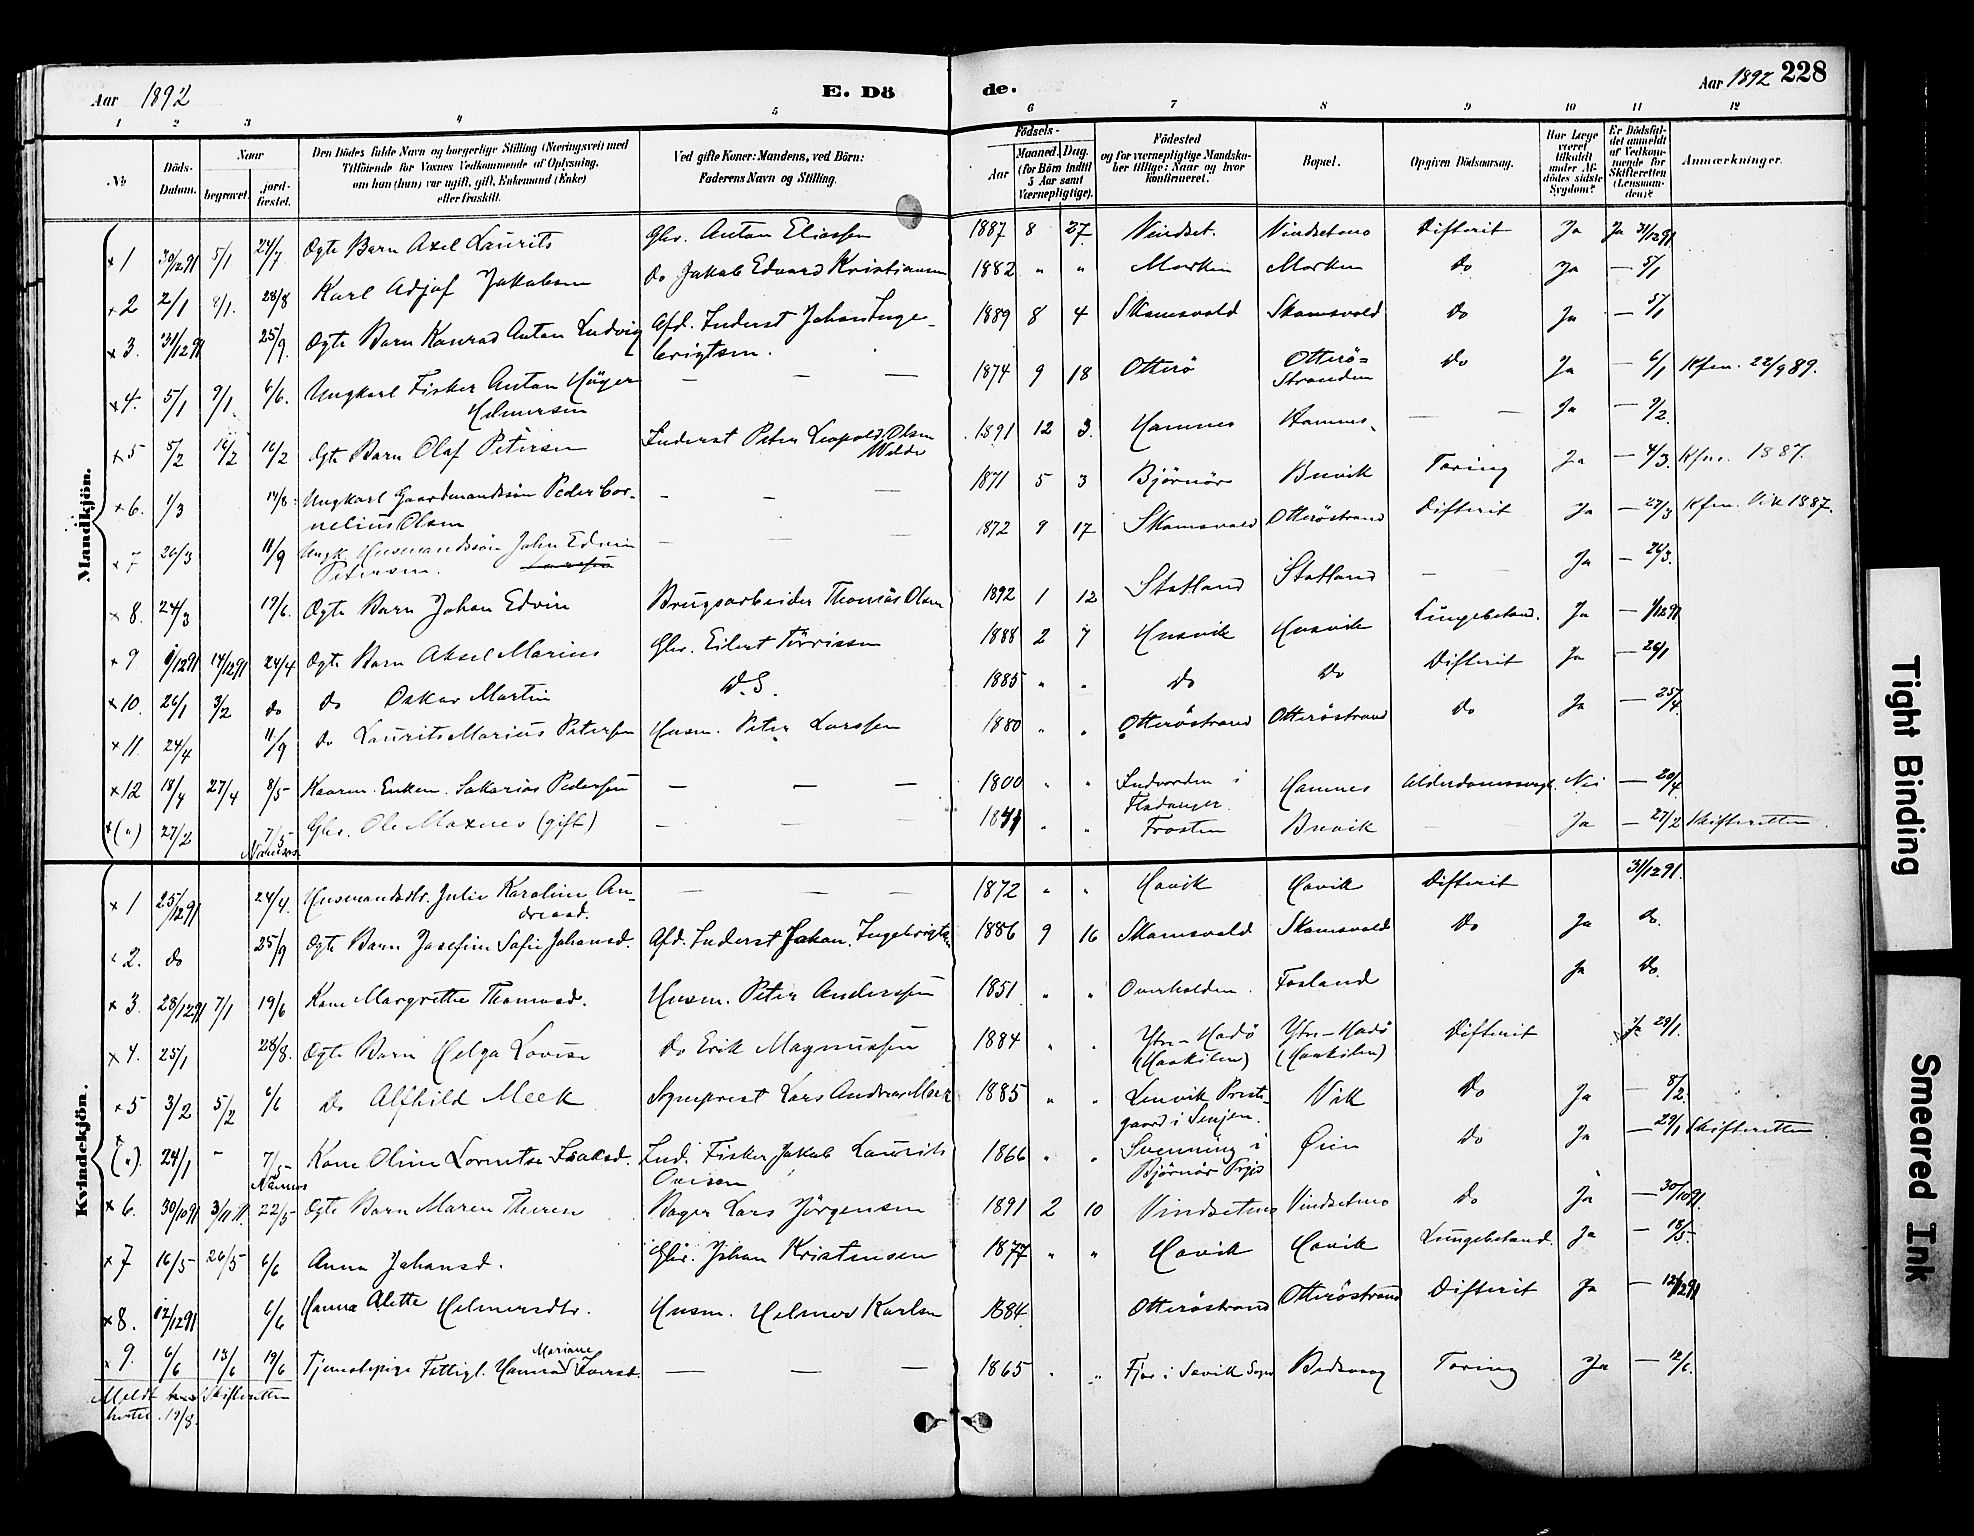 Aar 1892
E. Dö
de.
Aar 1892 228
1 2 3 4 5 6 7 8 9 10 11 12
No
Döds-Datum.
Naar
begravet.
jord-fæstet.
Den Dödes fulde Navn og borgerlige Stilling (Næringsvei) med
Tilföiende for Voxnes Vedkommende af Oplysning,
om han (hun) var ugift, gift, Enkemand (Enke)
eller fraskilt.
Ved gifte Koner: Mandens, ved Börn:
Faderens Navn og Stilling.
Födsels-
Aar
Maaned. Dag.
(for Börn indtil
5 Aar samt
Værnepligtige).
Födested
og for værnepligtige Mandska-
ber tillige: Naar og hvor
konfirmeret.
Bopæl.
Opgiven Dödsaarsag.
Har Læge
været
tilkaldt
under Af-
dödes sidste
Sygdom?
Er Dödsfal-
det anmeldt
af Vedkom-
mende for
Skifteretten
(Lensman-
den)?
Anmærkninger.
Mandkjön.
x 1 30/12 91 5/1 24/7 Ægte Barn Axel Laurits Gbr. Anton Eliassen 1887 8 27 Vindset. Vindsetmo Difterit Ja Ja 31/12 91
x 2 2/1 8/1. 28/8 Karl Adjof Jakobsen do Jakob Edvard Kristiansen 1882 " " Morken Morken do Ja — 5/1
x 3. 31/12 91 25/9. Ægte Barn Konrad Anton Ludvig Afd. Inderst Johan Inge-
brigtsen. 1889 8 4 Skomsvold Skomsvold do Ja — 5/1
x 4. 5/1 9/1. 6/6. Ungkarl Fisker Anton Höyer
Helmersen — — — 1874 9 18 Otterö Otterö-
Stranden do Ja — 6/1 Kfm. 22/9 89.
x 5 5/2 16/2 16/2 Ægte Barn Olaf Petersen Inderst Peter Leopold Olsen
Welde 1891 12 3. Hamnes Hamnes. — — Ja — 9/2.
x 6. 1/3 14/8. Ungkarl Gaardmandssön Peder Cor-
nelius Olsen — — — 1871 5 3 Björnör Buvik Tæring Ja — 4/3. Kfm. 1887.
x 7 26/3 11/9 Ungk. Husmandssön John Edvin
Petersen. — — — 1872 9 17 Skomsvold Otteröstrand Difterit Ja — 27/3 Kfm. Vik 1887.
x 8. 24/3 19/6. Ægte Barn Johan Edvin Brugsarbeider Thomas Olsen 1892 1 12 Statland Statland — — Ja — 26/3.
x 9 9/12 91 14/12 91 24/4 Ægte Barn Aksel Marius Gbr. Eilert Törrissen 1888 2 7 Husvik Husvik Lungebetænd. Ja — 1/12 91
x 10. 26/1 3/2 do do Oskar Martin D.S. 1885 " " do do Difterit Ja — 26/1
x 11. 24/4 11/9 do Laurits Marius Petersen Husm. Peter Larssen 1880 " " Otteröstrand Otteröstrand do Ja — 25/4.
x 12 18/4 27/4 8/5 Kaarm. Enkem. Sakarias Pedersen — — — 1800 " " Indvorden i
Fladanger. Hamnes Alderdomssvagh. Nei — 20/4
x (") 27/2 7/5
Namsos Gbr. Ole Moxnes (gift) — — — 1841 " " Frosten Buvik — — Ja — 27/2 Skifteretten
Kvindekjön.
x 1 25/12 91 24/4. Husmandsdtr. Julie Karoline An-
dreasd. — — — 1872 " " Hovik Hovik Difterit 31/12 91.
" 2. do 25/9 Ægte Barn Josefine Sofie Johansd. Afd. Inderst Johan Ingebrigtsen 1886 9 16 Skomsvold Skomsvold do Ja do.
x 3. 28/12 91 7/1 19/6 Kone Margrethe Thomasd. Husm. Peter Anderssen 1851 " " Overhalden. Fosland Ja do.
x 4. 25/1 28/8. Ægte Barn Helga Lovise do Erik Magnussen 1884 " " Ytre-Hadö
(Haakilen) Ytre-Hadö
(Haakilen) Difterit Ja 29/1.
x 5 3/2 5/2 6/6 do Alfhild Meek Sogneprest Lars Andreas Meek 1885 " " Lenvik Præste-
gaard i Senjen. Vik do Ja — 8/2.
x (") 24/1 – 7/5
Namsos Kone Oline Lorentse Isaksd. Ind. Fisker Jakob Laurits
Ovesen 1866 " " Svenning i
Björnör Prgj. Øien do Ja — 29/1 Skifteretten
x 6. 30/10 91 3/11 91. 22/5 Ægte Barn Maren Therese Bager Lars Jörgensen 1891 2 10 Vindsetmo Vindsetmo do Ja — 30/10 91.
x 7 16/5 26/5 6/6 Anna Johansd. Gbr. Johan Kristensen 1877 " " Hovik Hovik Lungebetænd. Ja — 18/5
x 8. 12/12 91 6/6 Hanna Alette Helmersdtr. Husm. Helmer Karlsen 1884 Otteröstrand Otteröstrand Difterit Ja — 12/12 91
x 9. 6/6 13/6 19/6 Tjenestepige Fattigl. Hanna Mariane Iversd. — — — 1865 " " Fjær i Sævik Sogn Bedsvaag Tæring Ja — 12/6.
Meldt Skifteretten
19/8.
Tight Binding
Smeared Ink